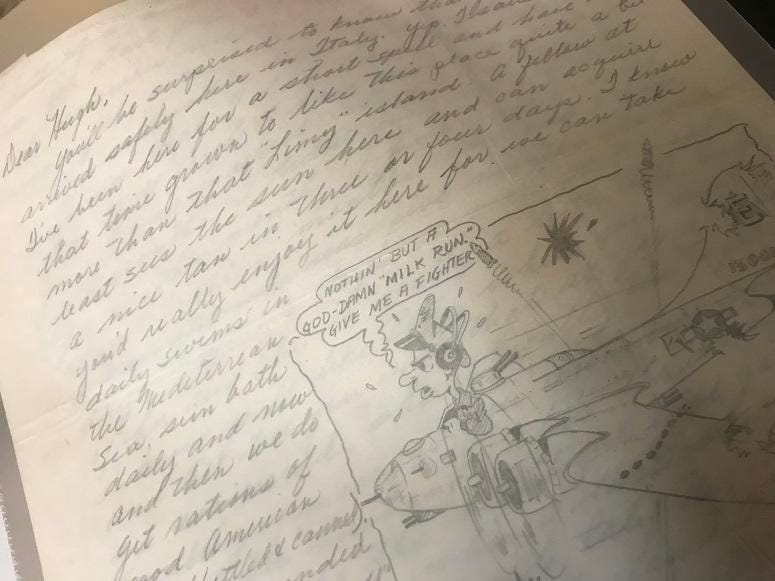 Dear Hugh,
You'll be surprised to know that
arrived safely here in Italy. yp.
I've been here for a short spell and have
that time grown to like this place quite a bit
more than that "Limy" island. A fellow at
least sees the sun here and can acquire
a nice tan in three or four days. I know
you'd really enjoy it here for we can take
daily swims in
the Mediterrean
Sea, sun bath
daily and now
and then we do
get rations of
good American
NOTHIN' BUT A
GOD-DAMN "MILK RUN."
GIVE ME A FIGHTER